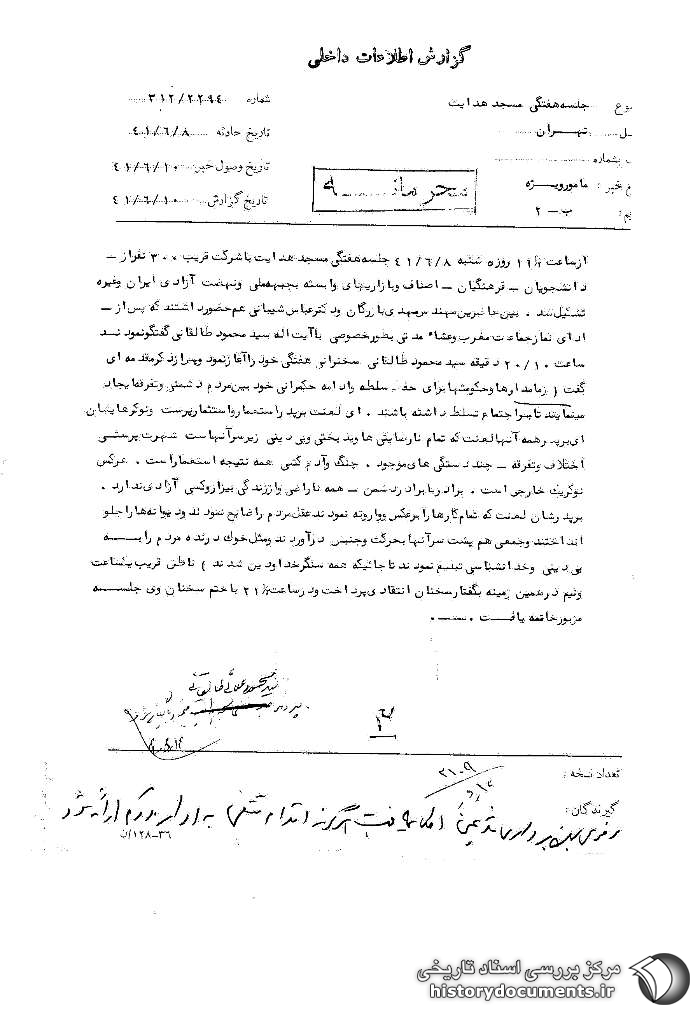 گزارش اطلاعات داخلی
وع جلسه هفتگی مسجد هدایت شماره ۳۱۲/۲۲۹۴
ل تهران تاریخ حادثه ۴۱/۶/۸
شماره تاریخ وصول خبر ۴۱/۶/۱۰
ع خبر : مامور ویژه تاریخ گزارش ۴۱/۶/۱۰
یم : ب – ۲
محرمانه
از ساعت ۱۹ روز ۵ شنبه ۴۱/۶/۸ جلسه هفتگی مسجد هدایت با شرکت قریب ۳۰۰ نفر از –
دانشجویان – فرهنگیان – اصناف و بازاریهای وابسته بجبهه ملی ونهضت آزادی ایران وغیره
تشکیل شد . بین حاضرین مهندس مهدی بازرگان ودکتر عباس شیبانی هم حضور داشتند که پس از –
ادای نماز جماعت مغرب وعشاء مدتی بطور خصوصی با آیت اله سید محمود طالقانی گفتگو نمودند
ساعت ۲۰/۱۰ دقیقه سید محمود طالقانی سخنرانی هفتگی خود را آغاز نمود وپس از ذکر مقدمه ای
گفت ( زمامدارها وحکومتها برای حفظ سلطه وادامه حکمرانی خود بین مردم دشمنی وتفرقه ایجاد
مینمایند تا بر اجتماع تسلط داشته باشند . ای لعنت بر پدر استعمار واستثمار پرست ونوکرهایشان
ای بر پدر همه آنها لعنت که تمام نارضایتی ها وبدبختی وبی دینی زیر سر آنهاست شهرت پرستی
اختلاف وتفرقه – چند دستگی های موجود . جنگ وآدم کشی همه نتیجه استعمار است . هر کس
نوکر یک خارجی است . برادر با برادر دشمن – همه ناراضی واز زندگی بیزار وکسی آزادی ندارد .
بر پدرشان لعنت که تمام کارها را برعکس ووارونه نمودند عقل مردم را ضایع نمودند ودیوانه ها را جلو
انداختند وجمعی هم پشت سر آنها بحرکت وجنبش درآوردند ومثل خوک درنده مردم را به
بی دینی وخدانشناسی تبلیغ نمودند تا جائیکه همه سنگر خدا ودین شدند ) ناطق قریب یکساعت
ونیم در همین زمینه بگفتار سخنان انتقادی پرداخت ودر ساعت ۲۱ با ختم سخنان وی جلسه
مزبور خاتمه یافت .
سید محمود علائی طالقانی
تعداد نسخه :
۲۱۰۹
گیرندگان :
۱۲۸-۳۶/ن
مرکز بررسی اسناد تاریخی
historydocuments.ir